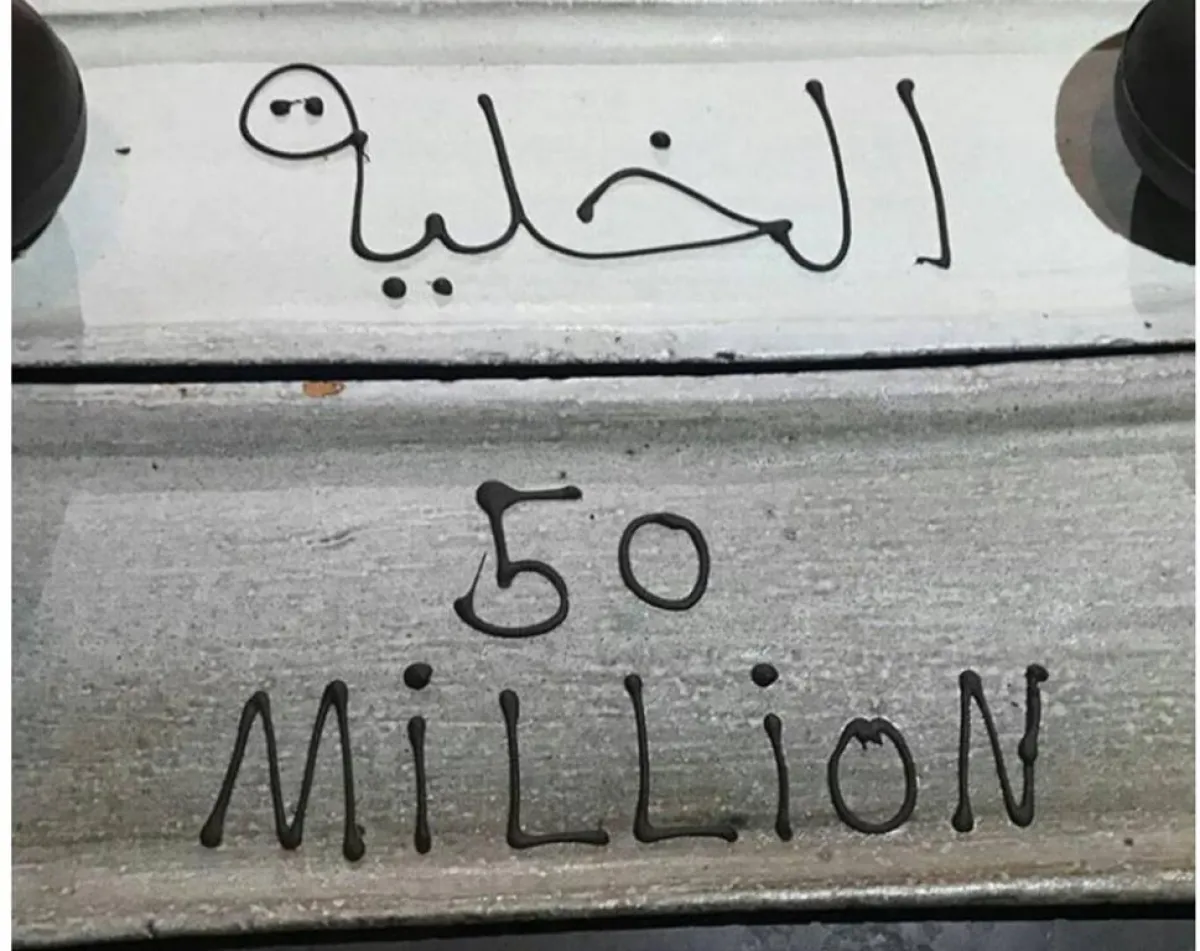 الخلية
50
MiLLioN